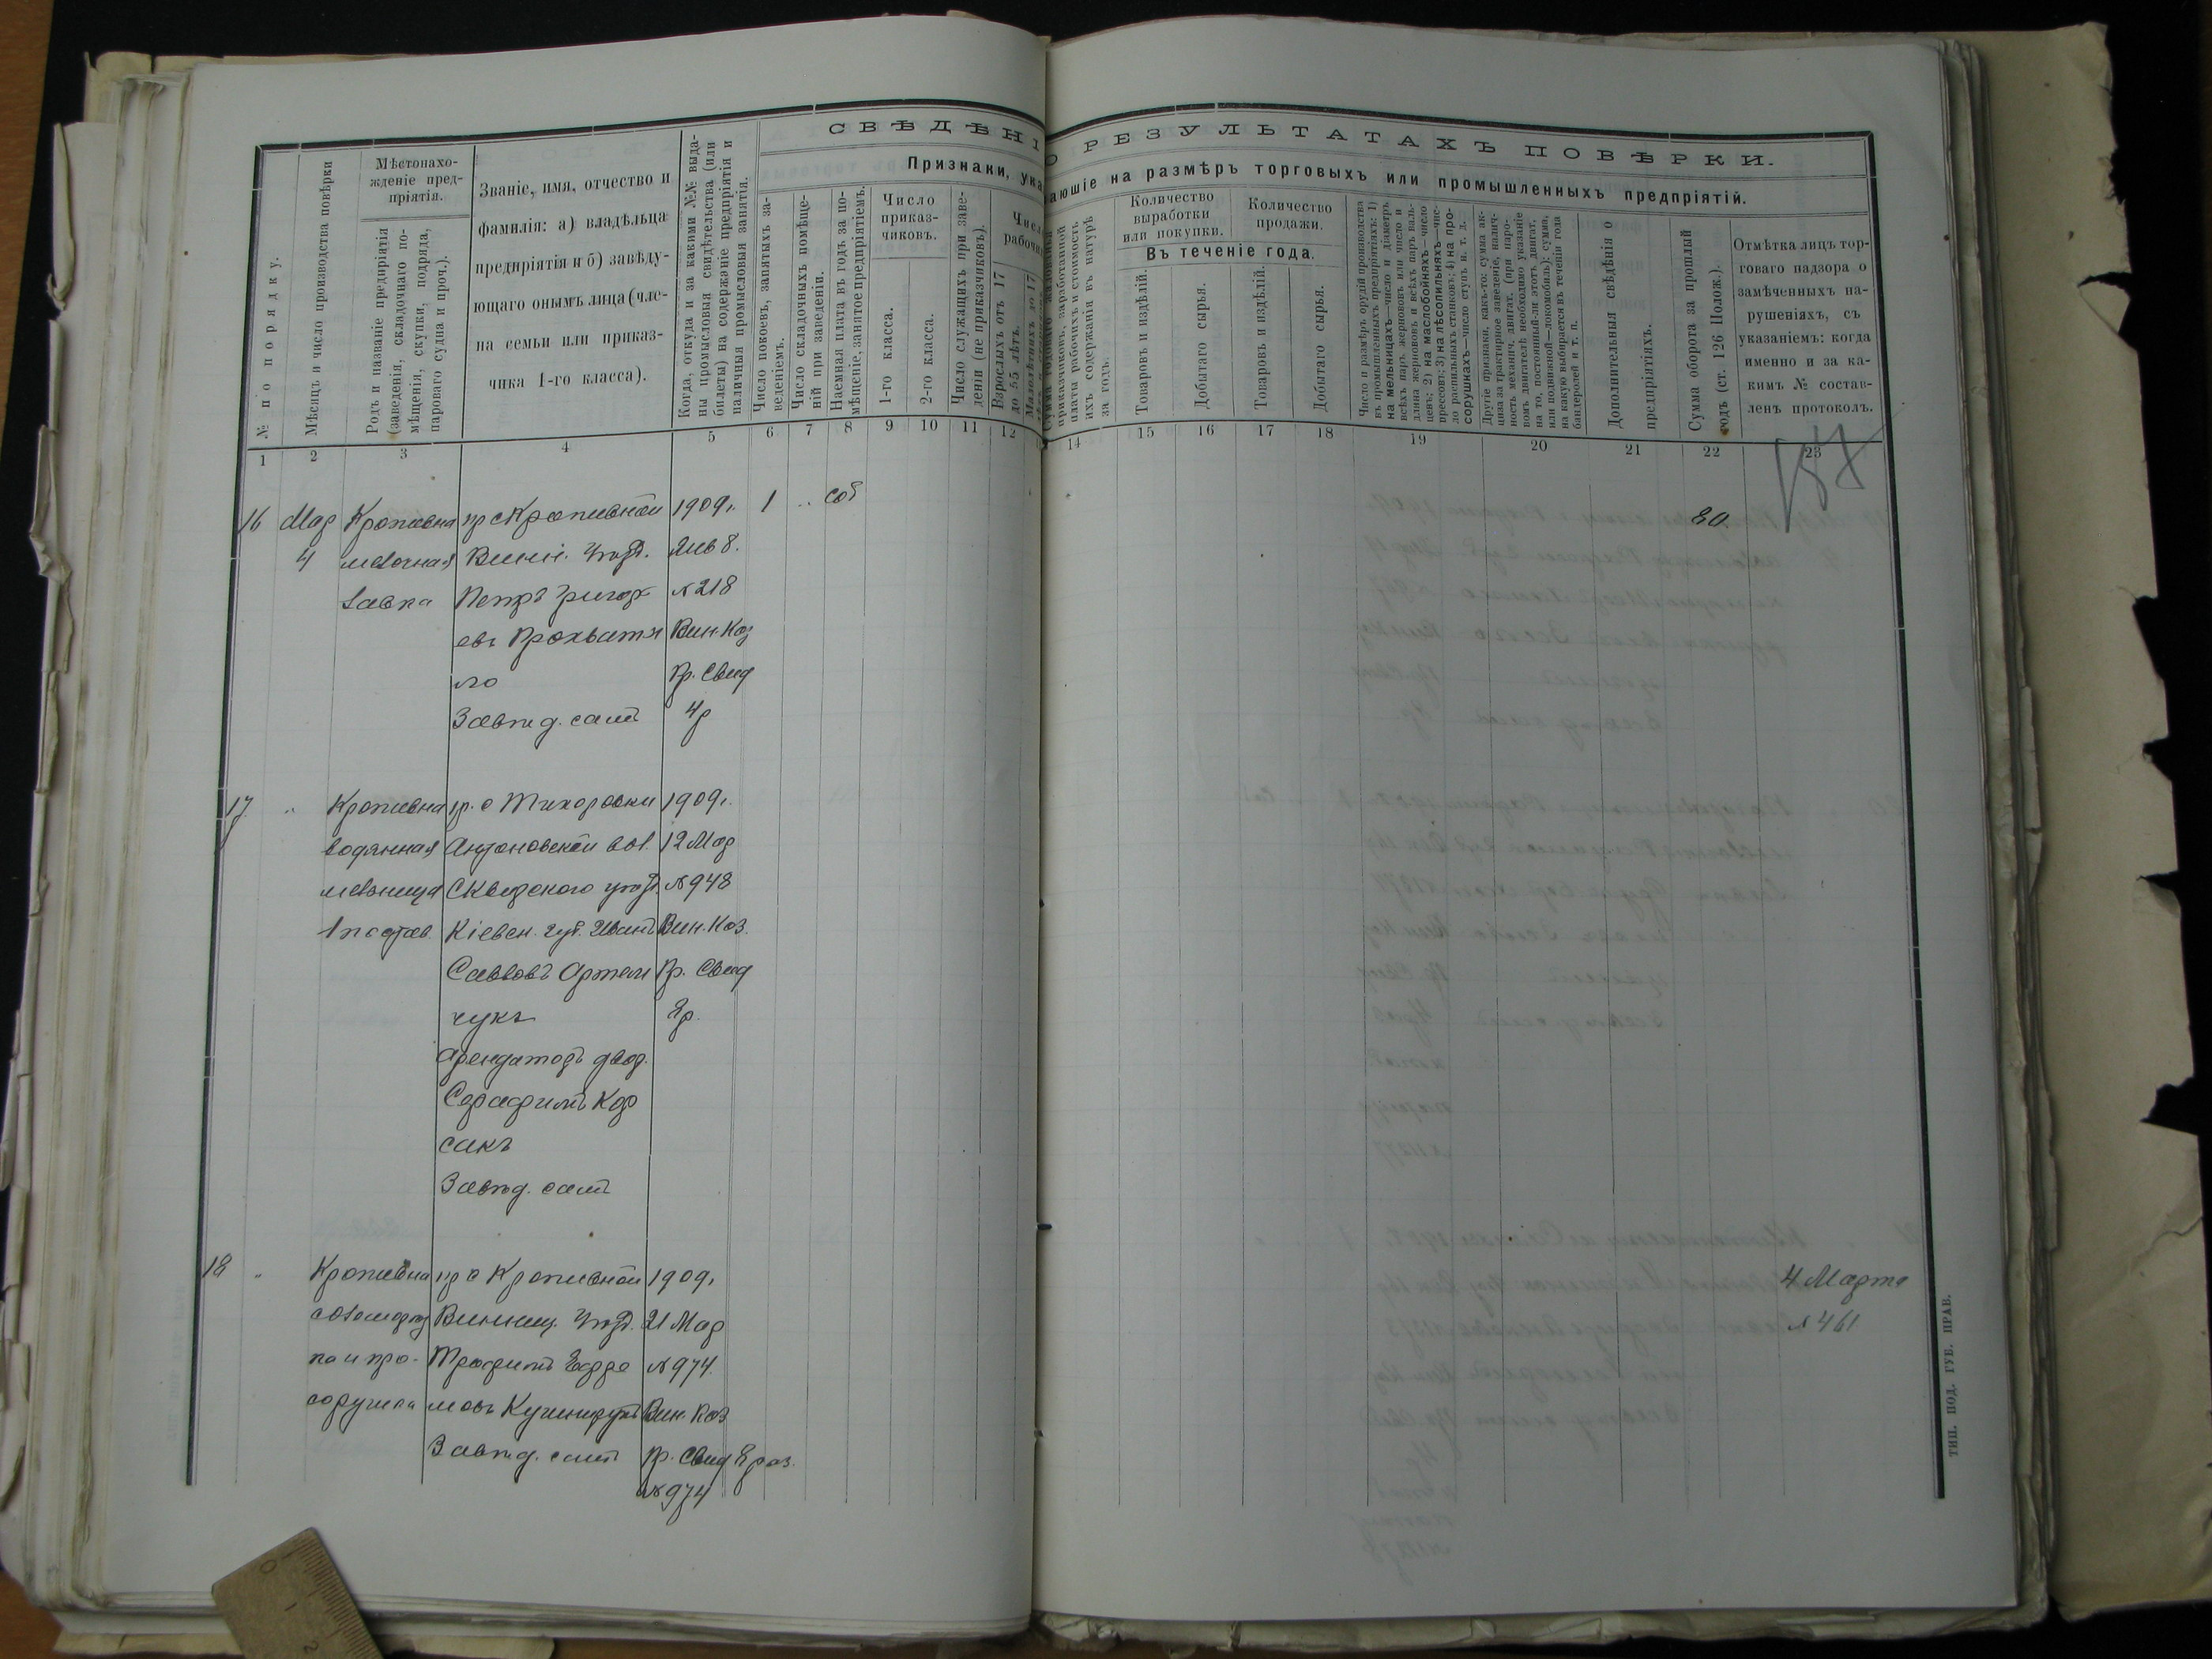 СВѢДѢНІ
О РЕЗУЛЬТАТАХЪ ПОВѢРКИ.
Признаки, ука
ающіе на размѣръ торговыхъ или промышленныхъ предпріятій.
№ по порядку.
Мѣсяцъ и число производства повѣрки
Мѣстонахо-
жденіе пред-
пріятія.
Родъ и названіе предпріятія
(заведенія, складочнаго по-
мѣщенія, скупки, подряда,
парового судна и проч.).
Званіе, имя, отчество и
фамилія: а) владѣльца
предпріятія и б) завѣду-
ющаго онымъ лица (чле-
на семьи или приказ-
чика 1-го класса).
Когда, откуда и за какими №№ выда-
ны промысловыя свидѣтельства (или
билеты) на содержаніе предпріятія и
наличныя промысловыя занятія.
Число покоевъ, занятыхъ за-
веденіемъ.
Число складочныхъ помѣще-
ній при заведеніи.
Наемная плата въ годъ за по-
мѣщеніе, занятое предпріятіемъ.
Число
приказ-
чиковъ.
1-го класса.
2-го класса.
Число служащихъ при заве-
деніи (не приказчиковъ).
Взрослыхъ отъ 17
до 55 лѣтъ.
Малолѣтнихъ до 17
приказчиковъ, заработанной
платы рабочихъ и стоимость
ихъ содержанія въ натурѣ
за годъ.
Количество
выработки
или покупки.
Количество
продажи.
Въ теченіе года.
Товаровъ и издѣлій.
Добытаго сырья.
Товаровъ и издѣлій.
Добытаго сырья.
Число и размѣръ орудій производства
въ промышленныхъ предпріятіяхъ: 1)
на мельницахъ—число и діаметръ
всѣхъ паръ жернововъ или число и
длина жернововъ и всѣхъ паръ валь-
цевъ; 2) на маслобойняхъ—число
прессовъ; 3) на лѣсопильняхъ—чис-
ло распильныхъ станковъ; 4) на про-
сорушкахъ—число ступъ и. т. д.
Другіе признаки, какъ-то: сумма ак-
циза за трактирное заведеніе, налич-
ность механич. двигат. (при паро-
вомъ двигателѣ необходимо указаніе
на то, постоянный-ли этотъ двигат.
или подвижной—локомобиль); сумма,
на какую выбирается въ теченіи года
бандеролей и т. п.
Дополнительныя свѣдѣнія о
предпріятіяхъ.
Сумма оборота за прошлый
годъ (ст. 126 Полож.).
Отмѣтка лицъ тор-
говаго надзора о
замѣченныхъ на-
рушеніяхъ, съ
указаніемъ: когда
именно и за ка-
кимъ № состав-
ленъ протоколъ.
1 2 3 4 5 6 7 8 9 10 11 12 14 15 16 17 18 19 20 21 22 23
16 Мар Кропивна кр с Кропивной 1909г. 1 .. соб
4 мелочная Винн. уѣзд. Янв 8.
лавка Петръ Григор № 218
евъ Прохват Вин. Каз
ло Пр. Свид
Завѣд. самъ 4р
17 " Кропивна кр. с Тихоровки 1909г.
водянная Антоновской вол. 12 Мар
мельница Сквирского уѣзд. № 948
1 постав. Кіевск. губ. Иванъ Вин. Каз.
Саввовъ Артем Пр. Свид
чукъ
Арендаторъ двор.
Серафимъ Кор
сакъ
Завѣд. самъ
18 " Кропивна кр с Кропивной 1909г. 4 Марта
Винниц. уѣзд. 21 Мар № 461
ка и про- Трофимъ Ефре № 974.
сорушка мовъ Вин. Каз
Завѣд. самъ Пр. Свид 8 раз.
№ 974
ТИП. ПОД. ГУБ. ПРАВ.